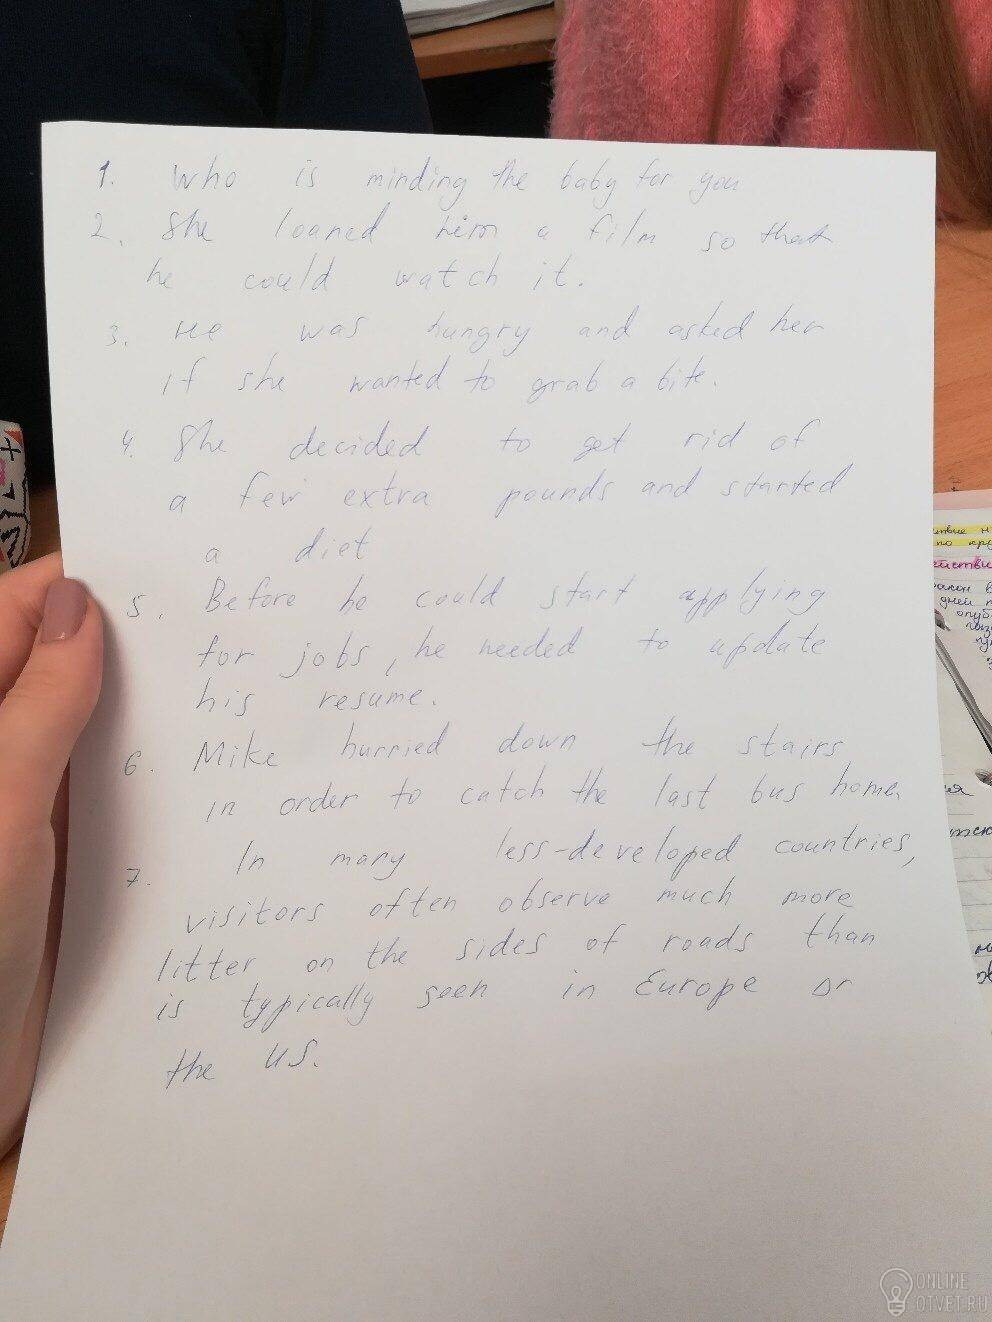 1. Who is minding the baby for you
2. She loaned him a film so that
he could watch it.
3. He was hungry and asked her
if she wanted to grab a bite.
4. She decided to get rid of
a few extra pounds and started
a diet
5. Before he could start applying
for jobs, he needed to update
his resume.
6. Mike hurried down the stairs
in order to catch the last bus home.
7. In many less-developed countries,
visitors often observe much more
litter on the sides of roads than
is typically seen in Europe or
the US.
по
дней
ONLINE
OTVET.RU